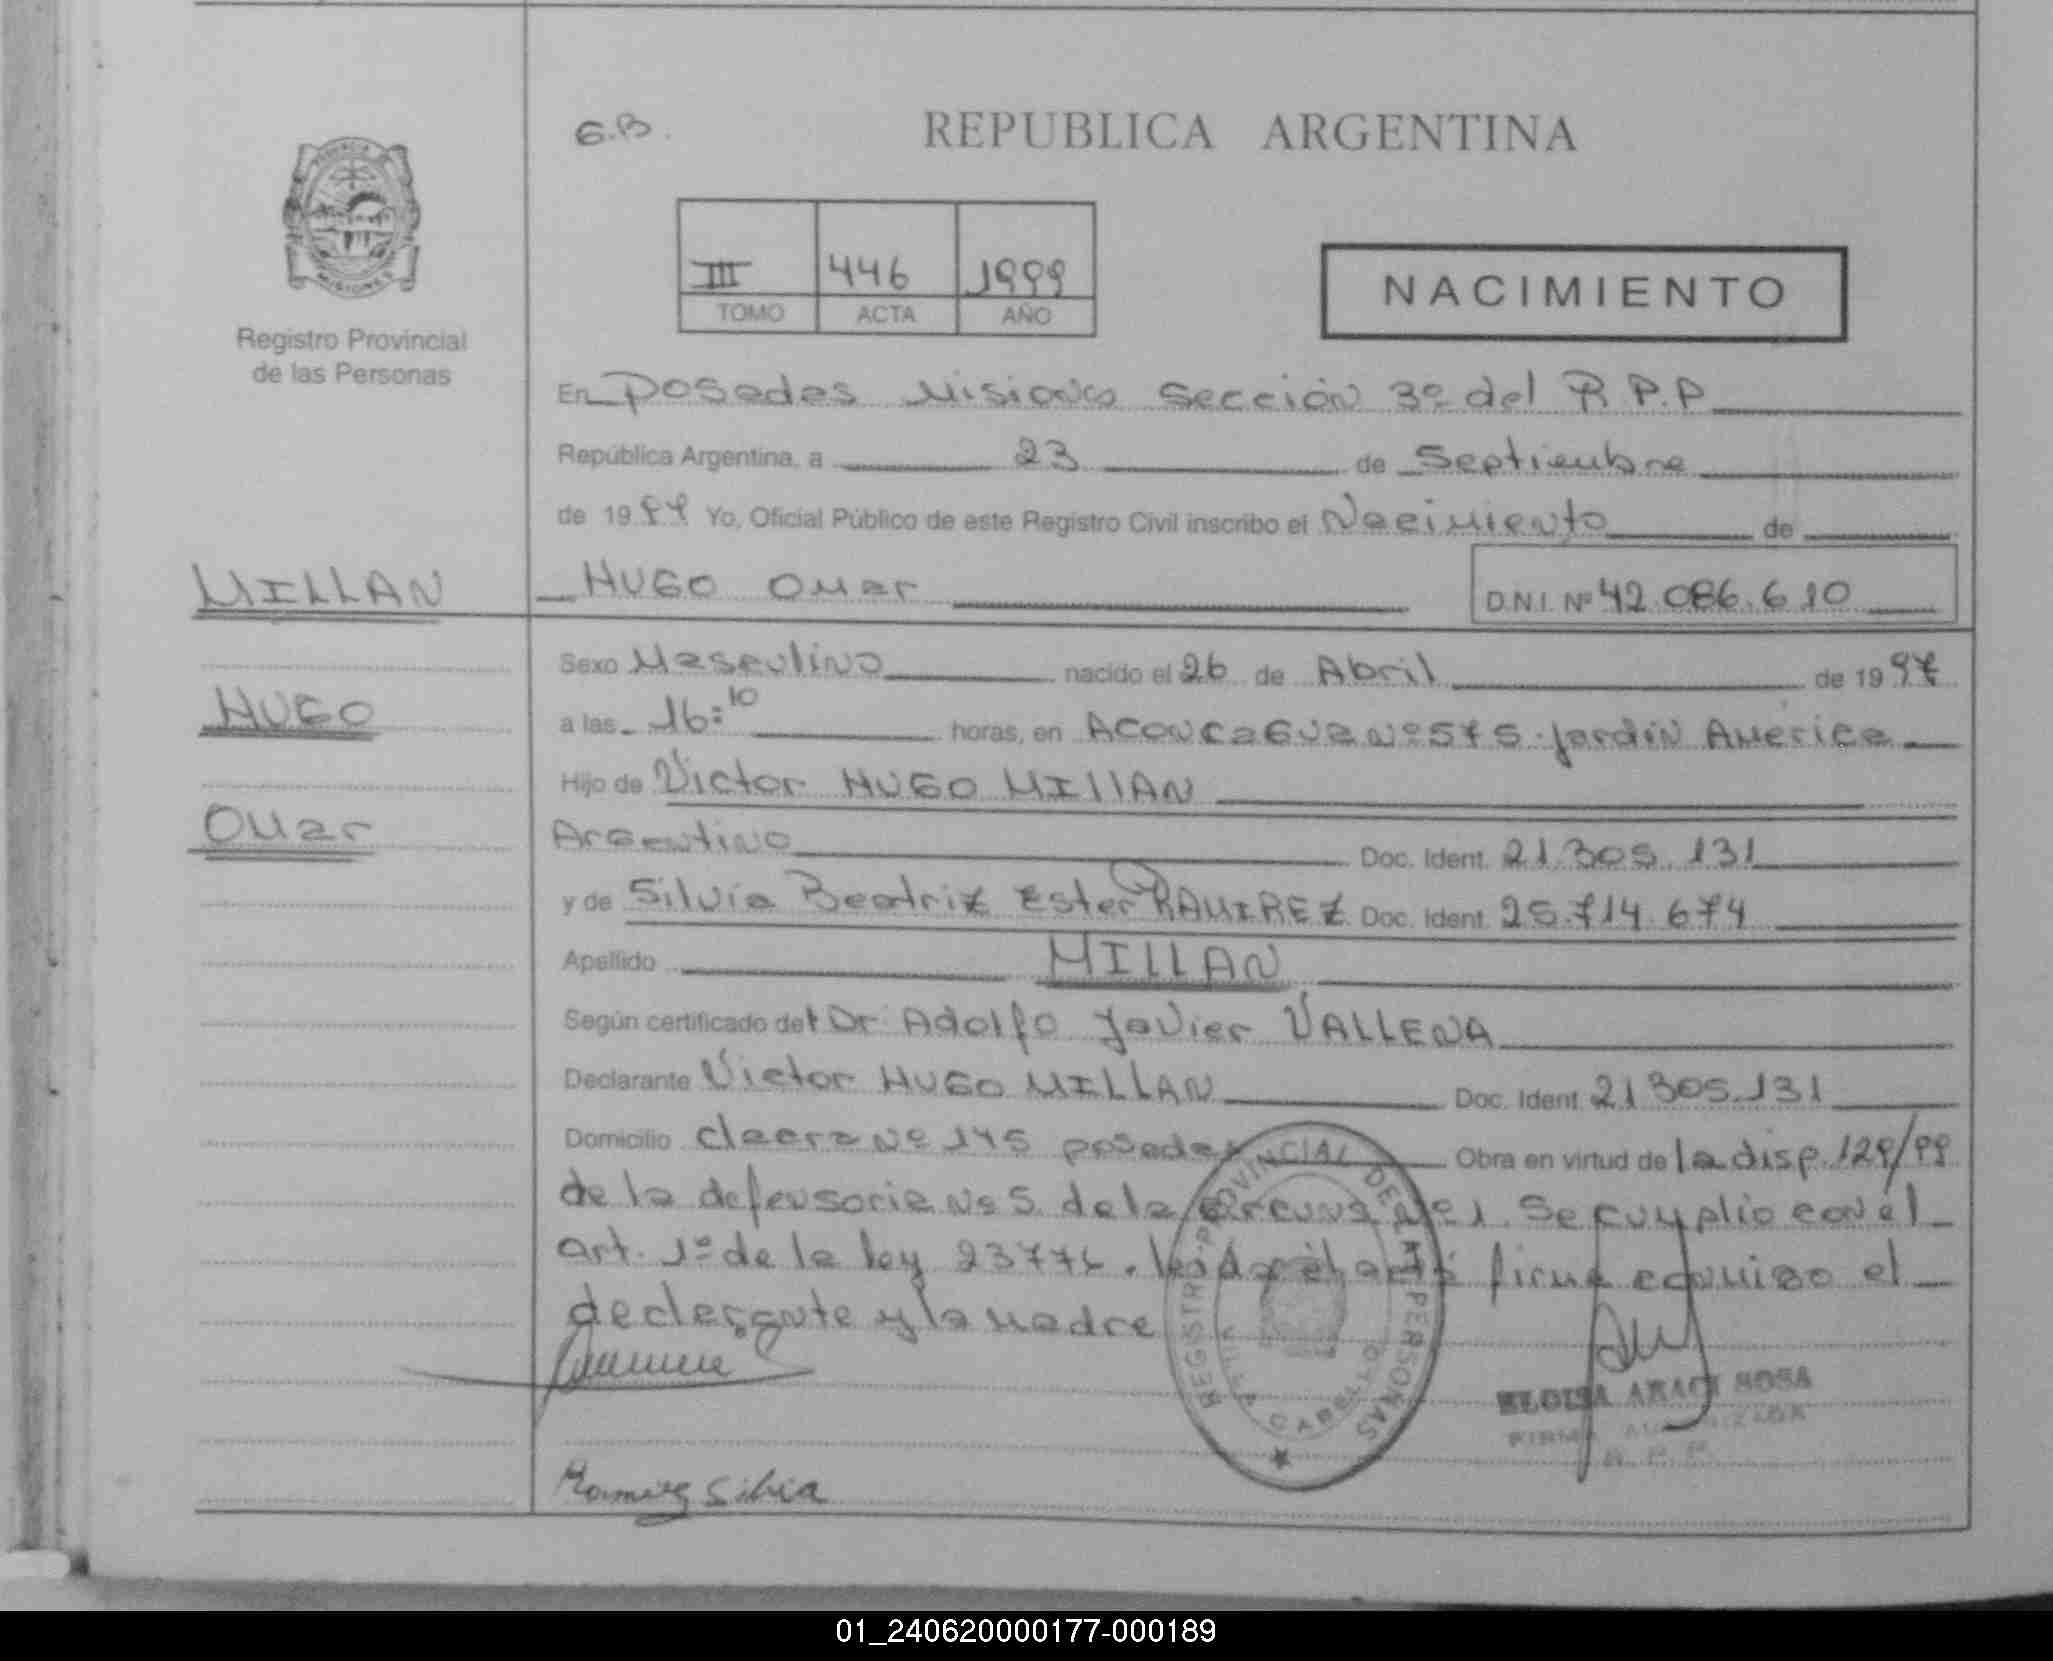 G.B.
REPUBLICA ARGENTINA
PROVINCIA DE
MISIONES
III 446 1999
TOMO ACTA AÑO
NACIMIENTO
Registro Provincial
de las Personas
En Posadas Misiones Sección 3º del R.P.P
República Argentina, a 23 de Septiembre
de 1999 Yo, Oficial Público de este Registro Civil inscribo el Nacimiento de
MILLAN HUGO Omar D.N.I. Nº 42.086.610
Sexo Masculino nacido el 26 de Abril de 1997
HUGO a las 16:10 horas, en Aconcagua nº 575 Jardín América
Hijo de Victor HUGO MILLAN
Omar Argentino Doc. Ident. 21.305.131
y de Silvia Beatriz Ester RAMIREZ Doc. Ident. 25.714.674
Apellido MILLAN
Según certificado del Dr. Adolfo Javier VALLENA
Declarante Victor HUGO MILLAN Doc. Ident. 21.305.131
Domicilio nº 145 posadas Obra en virtud de la disp. 129/99
de la defensoria nº 5 de la nº 1. Se cumplio con el
art. 1º de la ley 23776. leida el acta firma conmigo el
declarante y la madre
REGISTRO PROVINCIAL DE LAS PERSONAS
VILLA CABELLO
ELOISA ARACI SOSA
FIRMA AUTORIZADA
R. P. P.
Ramirez Silvia
01_240620000177-000189